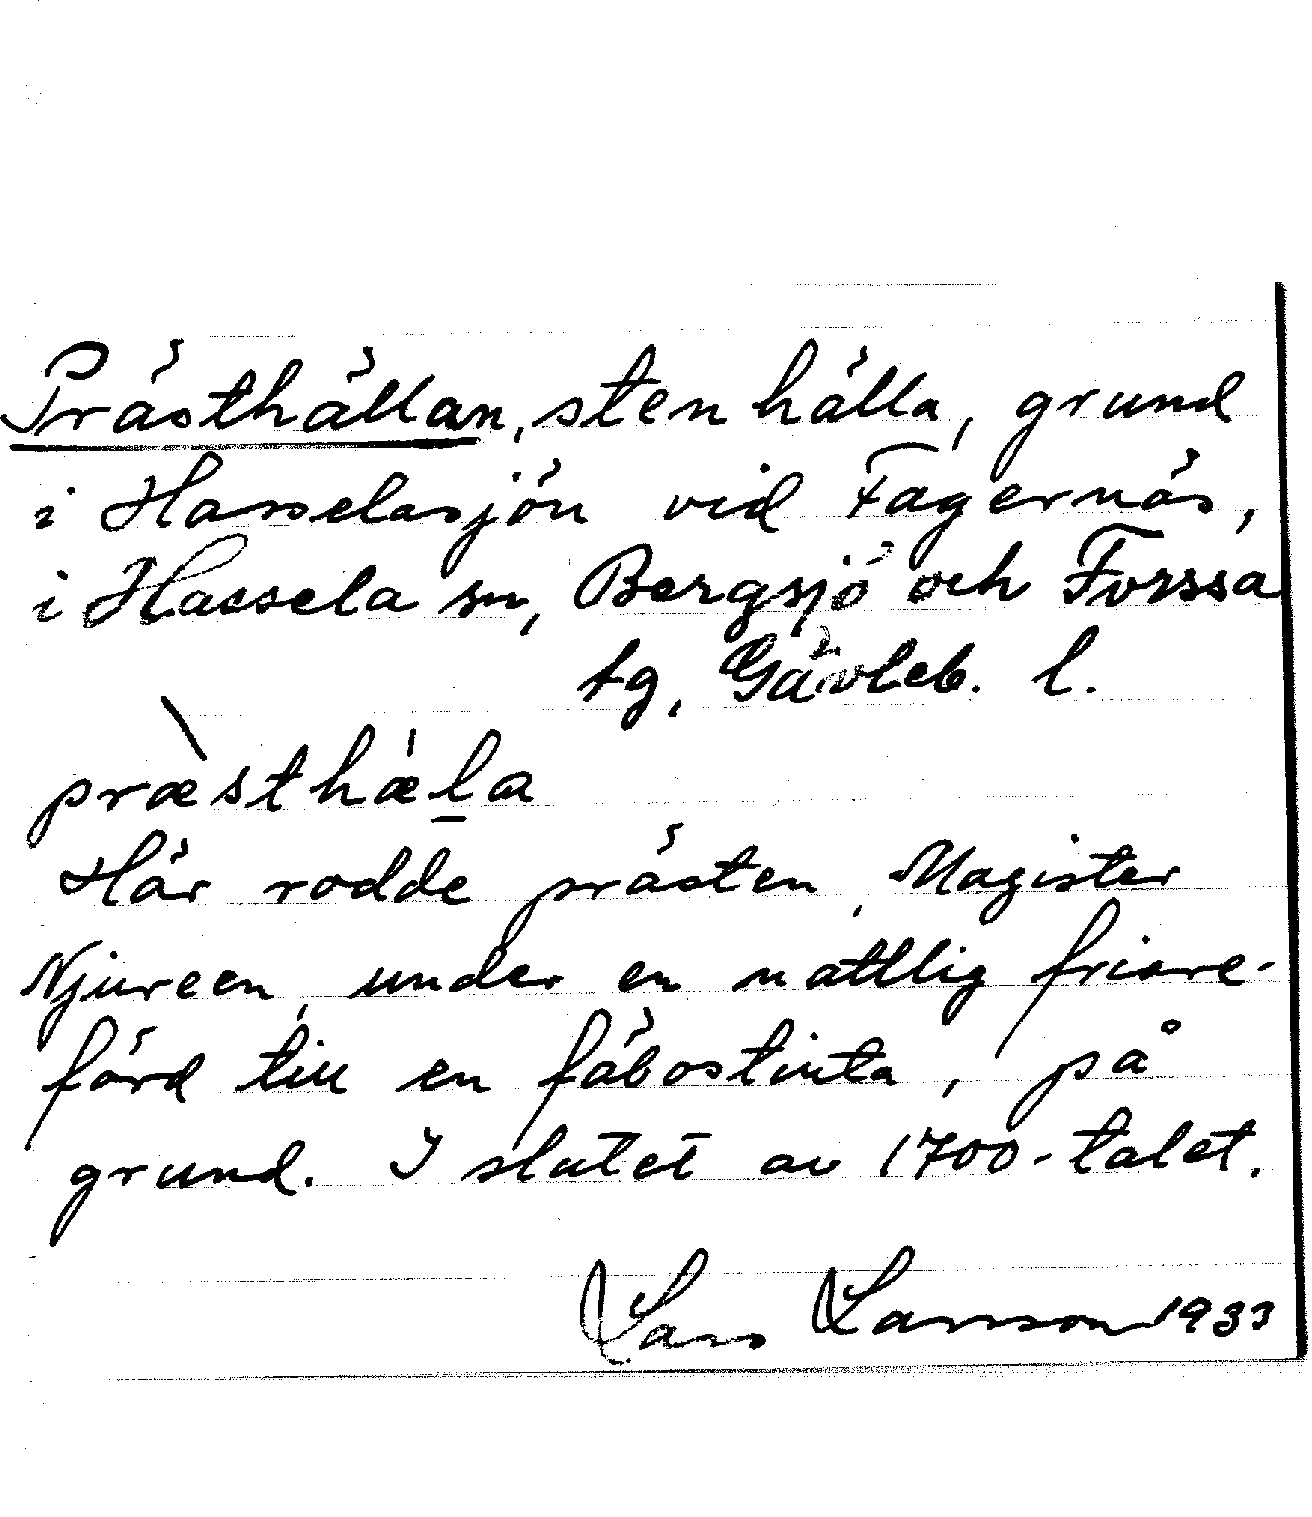 Prästhällan, stenhälla, grund
i Hasselasjön vid Fagernäs,
i Hassela sn, Bergsjö och Forssa
tg, Gävleb. l.
præ̀sthæ̍l̲a
Här rodde prästen, Magister
Njureen, under en nattlig friare-
färd till en fäbostinta, på
grund. I slutet av 1700-talet.
Lars Larsson 1933